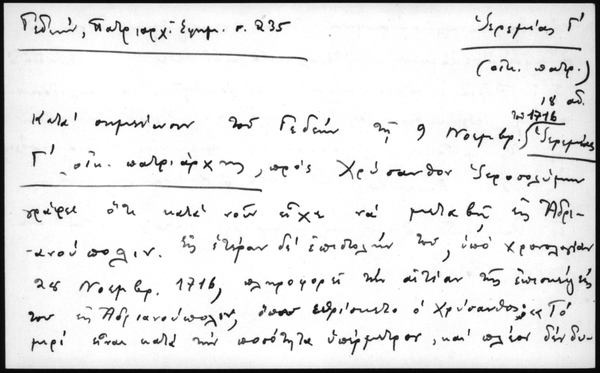 Γεδεών, Πατριαρχ. Εφημ. σ. 235
Ἱερεμίας Γ΄
(οἰκ. πατρ.)
18 αἰ.
τῷ 1716
Κατά σημείωσιν τοῦ Γεδεών τῇ 9 Νοεμβρ. Ἱερεμίας
Γ΄, οἰκ. πατριάρχης, πρός Χρύσανθον Ἱεροσολύμων
γράφει ὅτι κατά νοῦν εἶχε νά μεταβῇ εἰς Ἀδρι-
-ανούπολιν. Εἰς ἑτέραν δέ ἐπιστολήν του, ὑπό χρονολογίαν
28 Νοεμβρ. 1716, πληροφορεῖ τήν αἰτίαν τῆς ἐπισκέψεώς
του εἰς Ἀδριανούπολιν, ὅπου εὑρίσκετο ὁ Χρύσανθος: «Τό
μιρί εἶναι κατά τήν ποσότητα ὑπέρμετρον, καί πλέον δέν δυ-